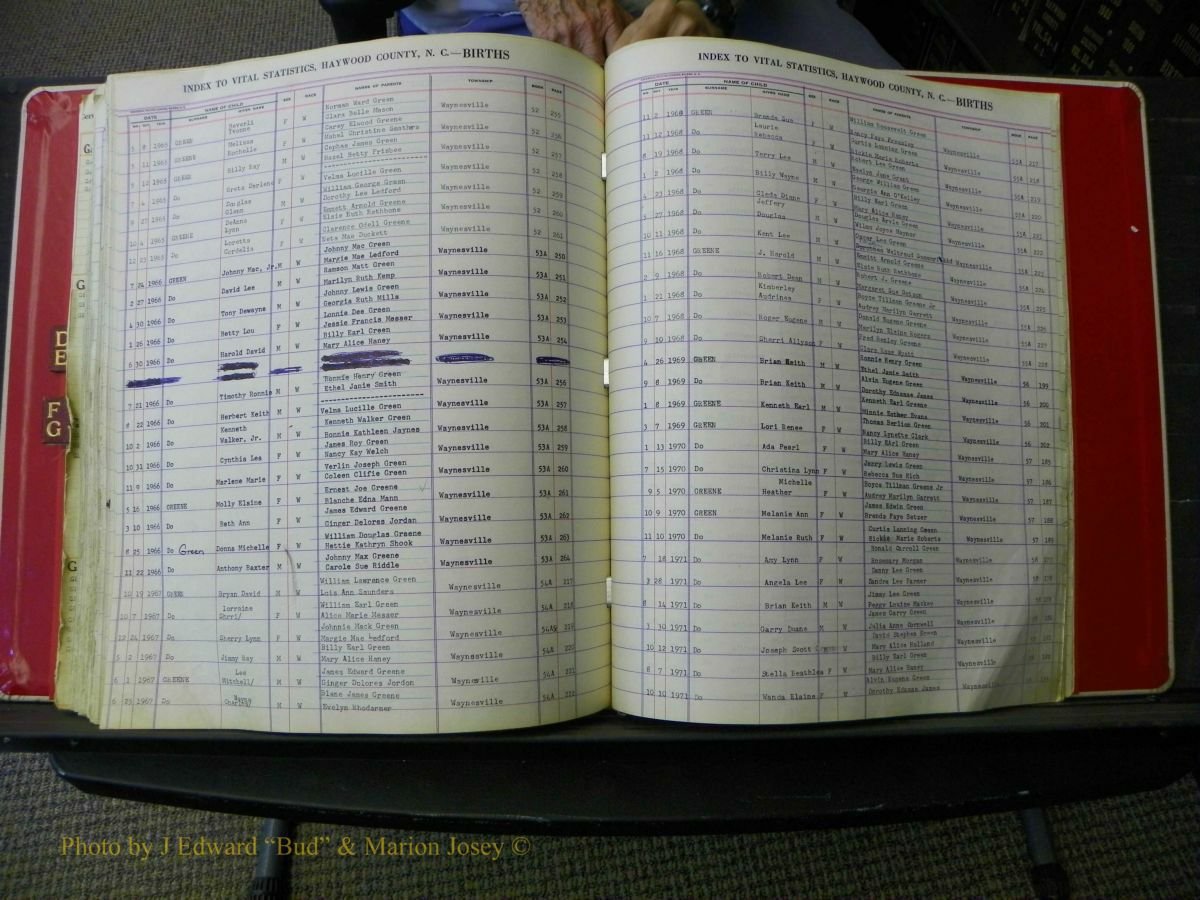 INDEX TO VITAL STATISTICS, HAYWOOD COUNTY, N. C.—BIRTHS
DATE NAME OF CHILD NAME OF PARENTS TOWNSHIP BOOK PAGE
SURNAME GIVEN NAME SEX RACE
Norman Ward Green
5 8 1965 GREEN Beverli Yvonne F W Clara Belle Mason Waynesville 52 255
Carey Elwood Greene
5 11 1965 GREENE Melissa Rochelle F W Mabel Christine Smathers Waynesville 52 256
Cephas James Green
5 12 1965 GREEN Billy Ray M W Hazel Betty Frisbee Waynesville 52 257
7 4 1965 Do Greta Darlene F W Velma Lucille Green Waynesville 52 258
William George Green
8 27 1965 Do Douglas Glenn M W Dorothy Lee Ledford Waynesville 52 259
Emmett Arnold Greene
10 4 1965 GREENE DeAnna Lynn F W Elsie Ruth Rathbone Waynesville 52 260
Clarence Odell Greene
12 23 1965 Do Loretta Cordelia F W Neta Mae Duckett Waynesville 52 261
Johnny Mac Green
7 24 1966 GREEN Johnny Mac, Jr. M W Margie Mae Ledford Waynesville 53A 250
Ramson Matt Green
2 27 1966 Do David Lee M W Marilyn Ruth Kemp Waynesville 53A 251
Johnny Lewis Green
4 30 1966 Do Tony Dewayne M W Georgia Ruth Mills Waynesville 53A 252
Lonnie Dee Green
1 26 1966 Do Betty Lou F W Jessie Francis Messer Waynesville 53A 253
Billy Earl Green
6 30 1966 Do Harold David M W Mary Alice Haney Waynesville 53A 254
Ronnie Henry Green
7 21 1966 Do Timothy Ronnie M W Ethel Janie Smith Waynesville 53A 256
8 22 1966 Do Herbert Keith M W Velma Lucille Green Waynesville 53A 257
Kenneth Walker Green
10 2 1966 Do Kenneth Walker, Jr. M W Ronnie Kathleen Jaynes Waynesville 53A 258
James Roy Green
10 31 1966 Do Cynthia Lea F W Nancy Kay Welch Waynesville 53A 259
Verlin Joseph Green
11 9 1966 Do Marlene Marie F W Coleen Clifie Green Waynesville 53A 260
Ernest Joe Greene
5 16 1966 GREENE Molly Elaine F W Blanche Edna Mann Waynesville 53A 261
James Edward Greene
3 10 1966 Do Beth Ann F W Ginger Delores Jordan Waynesville 53A 262
William Douglas Greene
8 25 1966 Do Green Donna Michelle F W Hettie Kathryn Shook Waynesville 53A 263
Johnny Max Greene
11 22 1966 Do Anthony Baxter M W Carole Sue Riddle Waynesville 53A 264
William Lawrence Green
10 19 1967 GREEN Bryan David M W Lois Ann Saunders Waynesville 54A 217
William Earl Green
10 7 1967 Do Lorraine F W Alice Marie Messer Waynesville 54A 218
Johnnie Mack Green
12 24 1967 Do Sherry Lynn F W Margie Mae Ledford Waynesville 54A 219
Billy Earl Green
5 2 1967 Do Jimmy Ray M W Mary Alice Haney Waynesville 54A 220
James Edward Greene
6 1 1967 GREENE Lee Mitchell M W Ginger Dolores Jordon Waynesville 54A 221
Blane James Greene
6 23 1967 Do Wayne Charles M W Evelyn Rhodarmer Waynesville 54A 222
INDEX TO VITAL STATISTICS, HAYWOOD COUNTY, N. C.—BIRTHS
DATE NAME OF CHILD NAME OF PARENTS
SURNAME GIVEN NAME SEX RACE TOWNSHIP BOOK PAGE
William Roosevelt Green
11 2 1968 GREEN Brenda Sue F W Nancy Faye Waynesville 55A 217
Curtis Lanning Green
11 12 1968 Do Laurie Rebecca F W Rickie Marie Roberts Waynesville 55A 218
Robert Lee Green
8 19 1968 Do Terry Lee M W Evelyn Jane Grant Waynesville 55A 219
George William Green
1 2 1968 Do Billy Wayne M W Georgie Ann O'Kelley Waynesville 55A 220
Billy Earl Green
4 23 1968 Do Gleda Diane F W Mary Alice Haney Waynesville 55A 221
Douglas Arvle Green
4 27 1968 Do Jeffery Douglas M W Wilma Joyce Waynesville 55A 222
Oscar Lee Green
10 11 1968 Do Kent Lee M W Waynesville 55A 223
Emmitt Arnold Greene
11 16 1968 GREENE J. Harold M W Elsie Ruth Rathbone Waynesville 55A 224
Robert J. Greene
2 9 1968 Do Robert Dean M W Margaret Sue Waynesville 55A 225
Boyce Tillman Greene Jr
1 21 1968 Do Kimberley Audrinea F W Audrey Marilyn Garrett Waynesville 55A 226
Donald Eugene Greene
10 7 1968 Do Roger Eugene M W Marilyn Elaine Rogers Waynesville 55A 227
Fred Henley Greene
9 10 1968 Do Sherri Allyson F W Clara Rose Waynesville 55A 228
Ronnie Henry Green
4 26 1969 GREEN Brian Keith M W Ethel Janie Smith Waynesville 56 199
Alvin Eugene Green
9 8 1969 Do Brian Keith M W Dorothy Ednamae James Waynesville 56 200
Kenneth Earl Greene
1 8 1969 GREENE Kenneth Earl M W Minnie Esther Evans Waynesville 56 201
Thomas Berlion Green
3 7 1969 GREEN Lori Renee F W Nancy Lynette Clark Waynesville 56 202
Billy EArl Green
1 13 1970 Do Ada Pearl F W Mary Alice Haney Waynesville 57 185
Jerry Lewis Green
7 15 1970 Do Christina Lynn F W Rebecca Sue Rich Waynesville 57 186
Boyce Tillman Greene Jr
9 5 1970 GREENE Michelle Heather F W Audrey Marilyn Garrett Waynesville 57 187
James Edwin Green
10 9 1970 GREENE Melanie Ann F W Brenda Faye Setzer Waynesville 57 188
Curtis Lanning Green
11 10 1970 Do Melanie Ruth F W Rickie Marie Roberts Waynesville
Ronald Carroll Green
7 18 1971 Do Amy Lynn F W Rosemary Morgan Waynesville 58 177
Danny Lee Green
3 28 1971 Do Angela Lee F W Sandra Lee Farmer Waynesville 58 178
Jimmy Lee Green
8 14 1971 Do Brian Keith M W Peggy Louise Mackey Waynesville
James Garry Green
3 30 1971 Do Garry Duane M W Julia Anne Cornwell Waynesville
David Stephen Green
10 12 1971 Do Joseph Scott M W Mary Alice Holland Waynesville
Billy Earl Green
8 7 1971 Do Stella F W Mary Alice Haney Waynesville
Alvin Eugene Green
10 10 1971 Do Wanda Elaine F W Dorothy Ednamae James Waynesville
D
E
F
G
Photo by J Edward “Bud” & Marion Josey ©